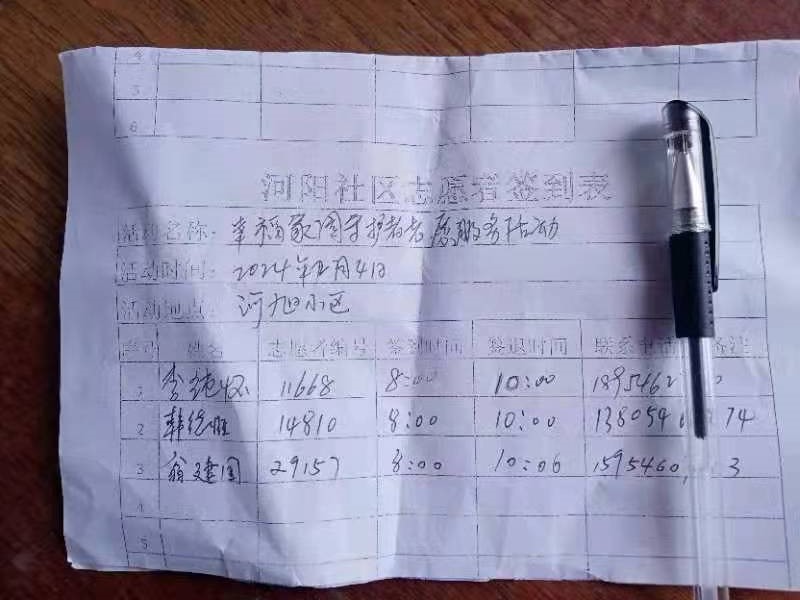 4
5
6
河阳社区志愿者签到表
活动名称：幸福家园守护者志愿服务活动
活动时间：2024年2月4日
活动地点：河旭小区
序号 姓名 志愿者编号 签到时间 签退时间 联系电话 备注
1 11668 8:00 10:00 1895462
2 韩德胜 14810 8:00 10:00 138054 74
3 翁建国 29157 8:00 10:00 1595460 3
4
5